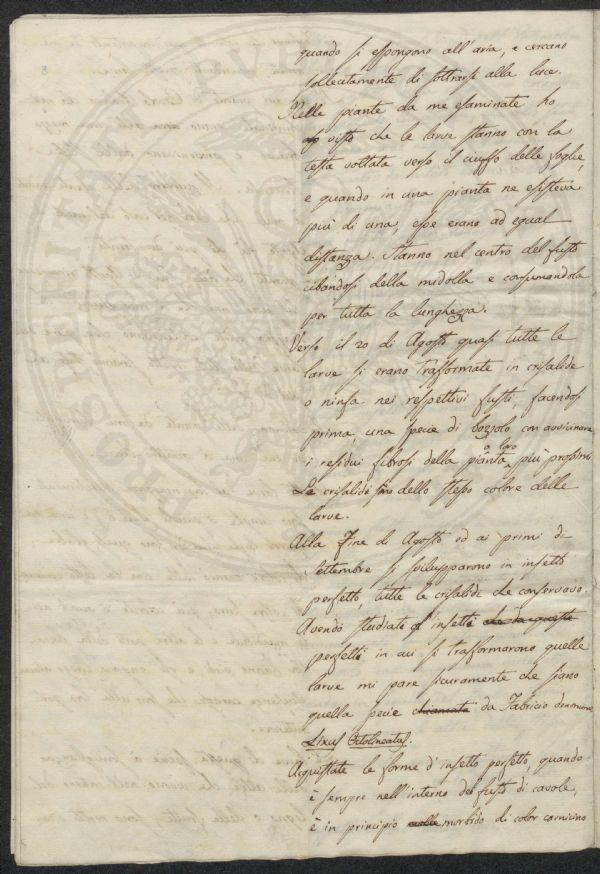 quando si espongono all'aria, e cercano
sollecitamente di sottrarsi alla luce.
Nelle piante da me esaminate ho
visto che le larve stanno con la
testa voltata verso il ciuffo delle foglie,
e quando in una pianta ne esisteva
più di una, esse erano ad egual
distanza. Stanno nel centro del fusto
cibandosi della midolla e consumandola
per tutta la lunghezza.
Verso il 20 di Agosto quasi tutte le
larve si erano trasformate in crisalide
o ninfa nei respettivi fusti, facendosi
prima, una specie di bozzolo con avvicinare
a loro
i residui fibrosi della pianta più prossimi
Le crisalidi sono dello stesso colore delle
larve.
Alla fine di Agosto ed ai primi di
Settembre si svilupparono in insetto
perfetto, tutte le crisalidi che conservavo.
Avendo studiati gl'insetti
perfetti in cui si trasformarono quelle
larve mi pare sicuramente che siano
quella specie chiamata da Fabricio denomin
Lixus Octolineatus.
Acquistate le forme d'insetto perfetto, quando
è sempre nell'interno dei fusti di cavole,
è in principio molle morbido di color carnicino